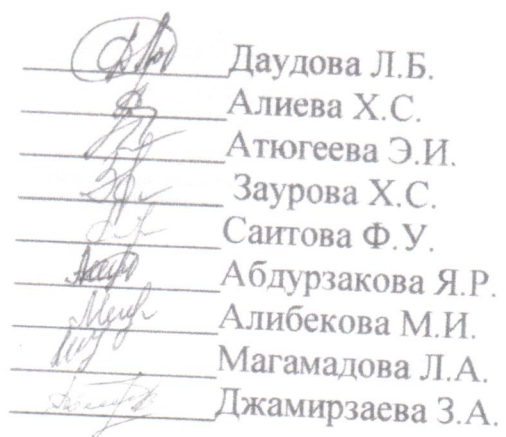 Даудова Л.Б.
Алиева Х.С.
Атюгеева Э.И.
Заурова Х.С.
Саитова Ф.У.
Абдурзакова Я.Р.
Алибекова М.И.
Магамадова Л.А.
Джамирзаева З.А.